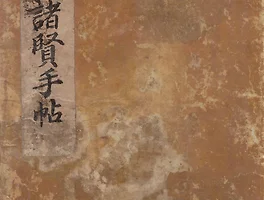 諸賢手帖